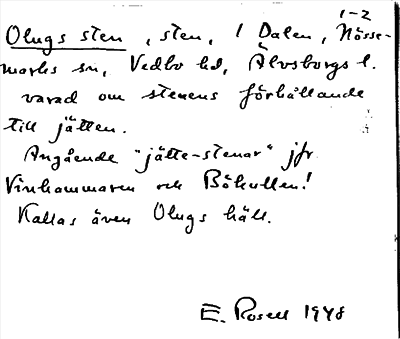 1-2
Olugs sten, sten, 1 Dalen, Nösse-
marks sn, Vedbo hd, Älvsborgs l.
varad om stenens förhållande
till jätten.
Angående "jätte-stenar" jfr
Vinhammaren och Bökullen!
Kallas även Olugs häll.
E. Rosell 1948